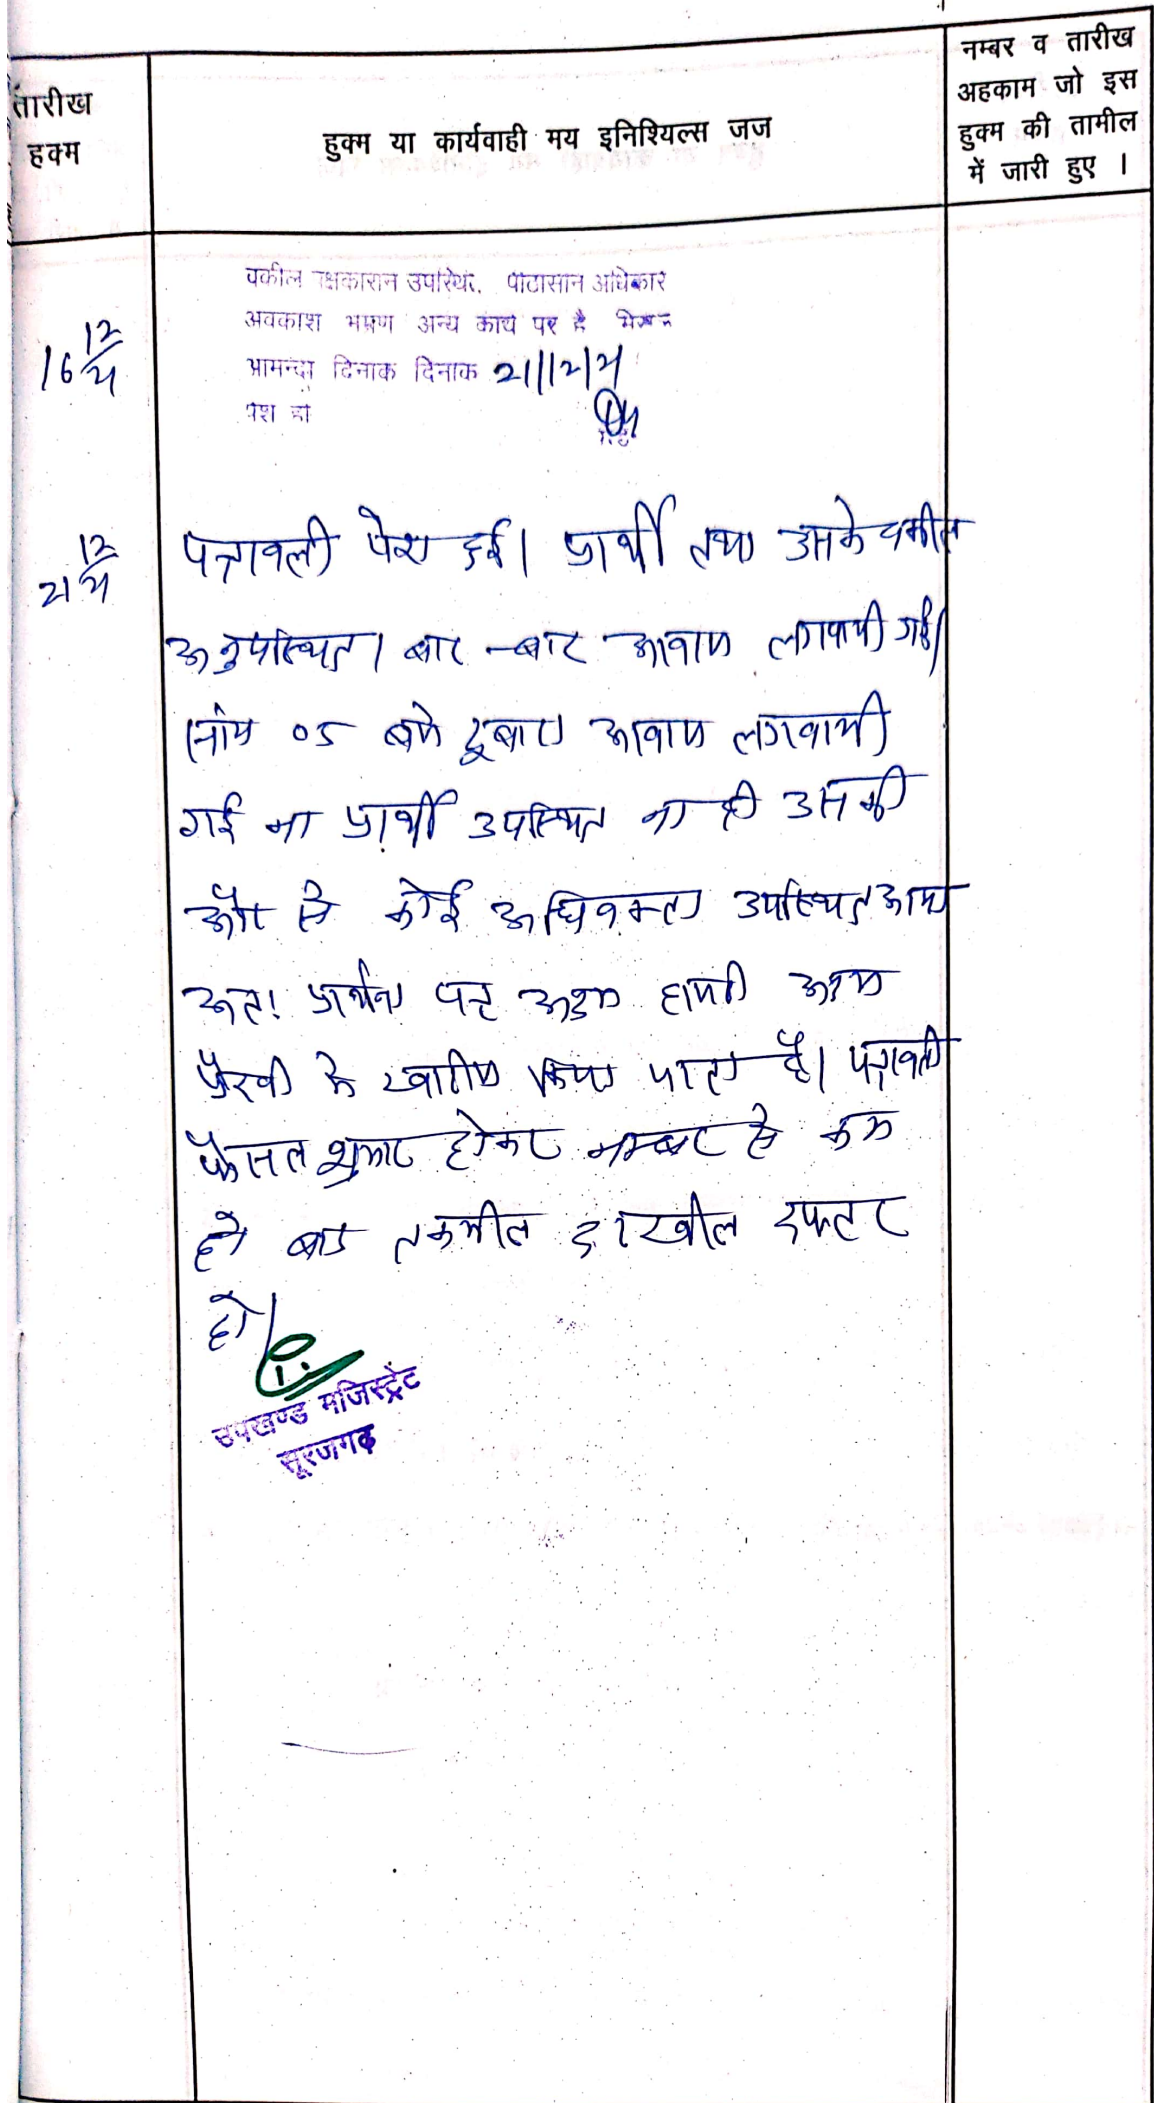 तारीख
हुक्म
हुक्म या कार्यवाही मय इनिश्यिल्स जज
नम्बर व तारीख
अहकाम जो इस
हुक्म की तामील
में जारी हुए ।
16 12
वकील पक्षकारान उपस्थित. पीठासीन अधिकारी
अवकाश भ्रमण अन्य कार्य पर है
आयन्दा दिनांक दिनांक 21/12/21
पेश हो
21 12
पत्रावली पेश हुई। प्रार्थी तथा उसके वकील
अनुपस्थित। बार-बार आवाज लगवायी गई।
05 बजे दुबारा आवाज लगवायी
गई ना प्रार्थी उपस्थित ना ही उसकी
और से कोई अधिवक्ता उपस्थित आया
अतः प्रार्थना पत्र अदम हाजरी अदम
पैरवी के खारीज किया जाता है। पत्रावली
फैसल शुमार होकर नम्बर से कम
हो बाद तकमील दाखील दफ्तर
हो।
उपखण्ड मजिस्ट्रेट
सूरजगढ़